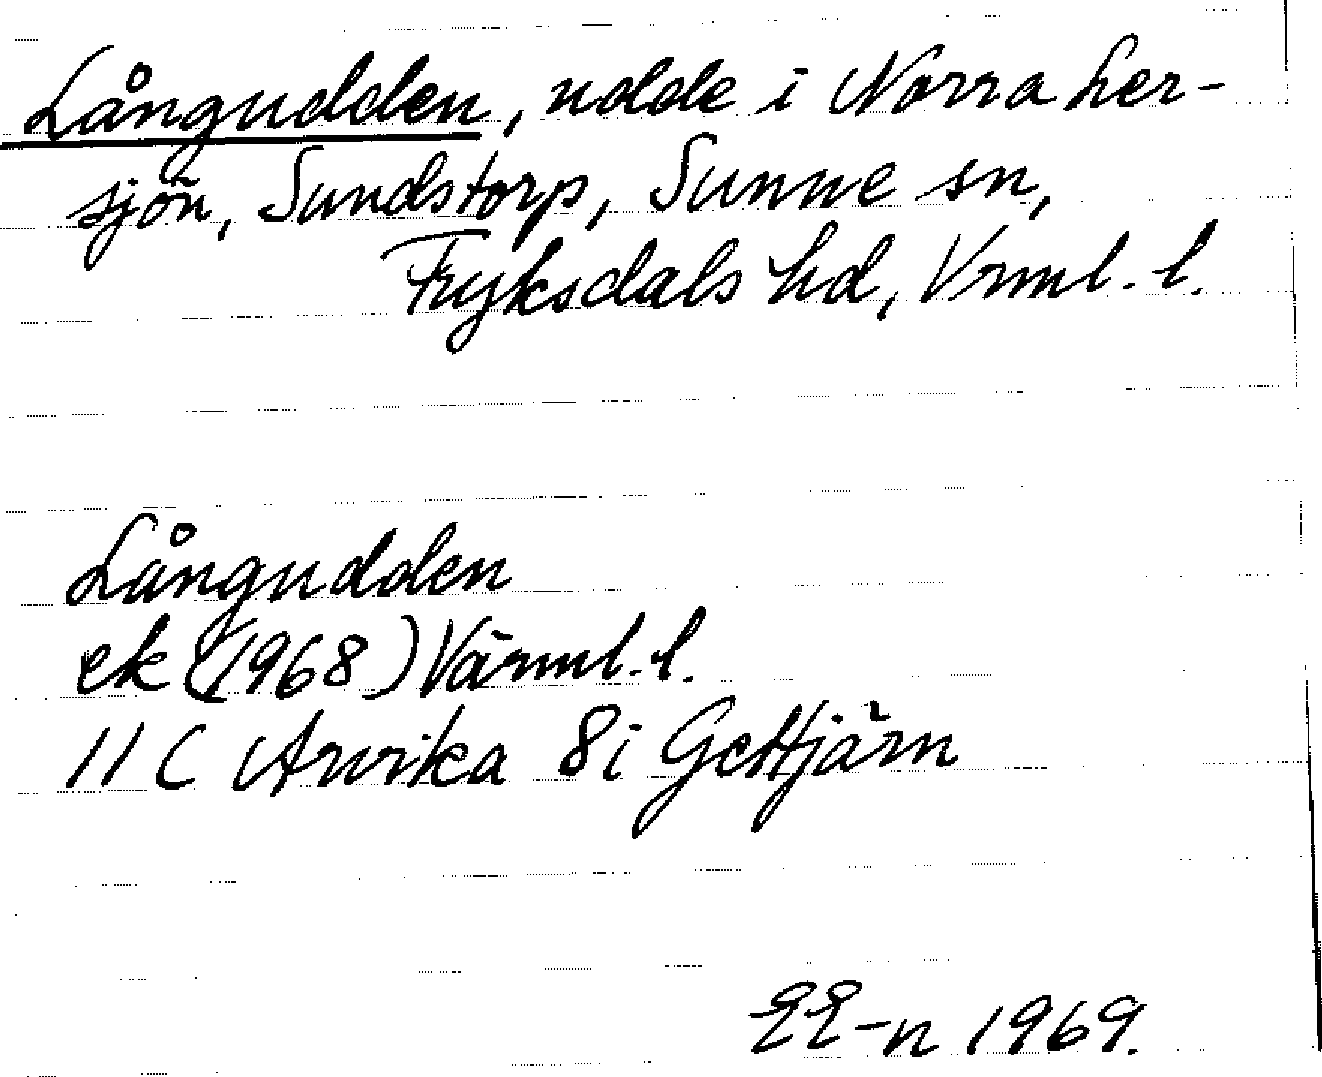 Långudden, udde i Norra Ler-
sjön, Sundstorp, Sunne sn,
Fryksdals hd, Vrml. l.
Långudden
ek (1968) Värml. l.
11 C Arvika 8i Gettjärn
EE-n 1969.